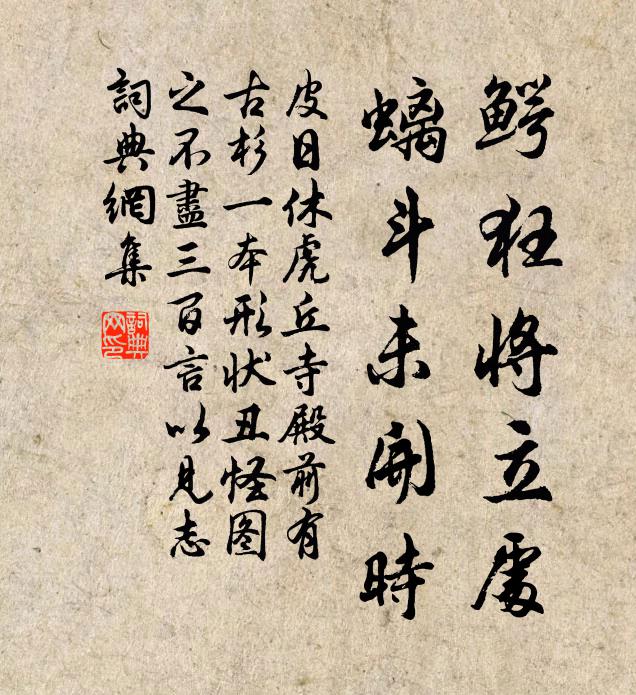 鳄狂將立處
螭斗未開時
皮日休虎丘寺殿前有
古杉一本形状丑怪图
之不盡三百言以見志
詞典網集
詞典網印